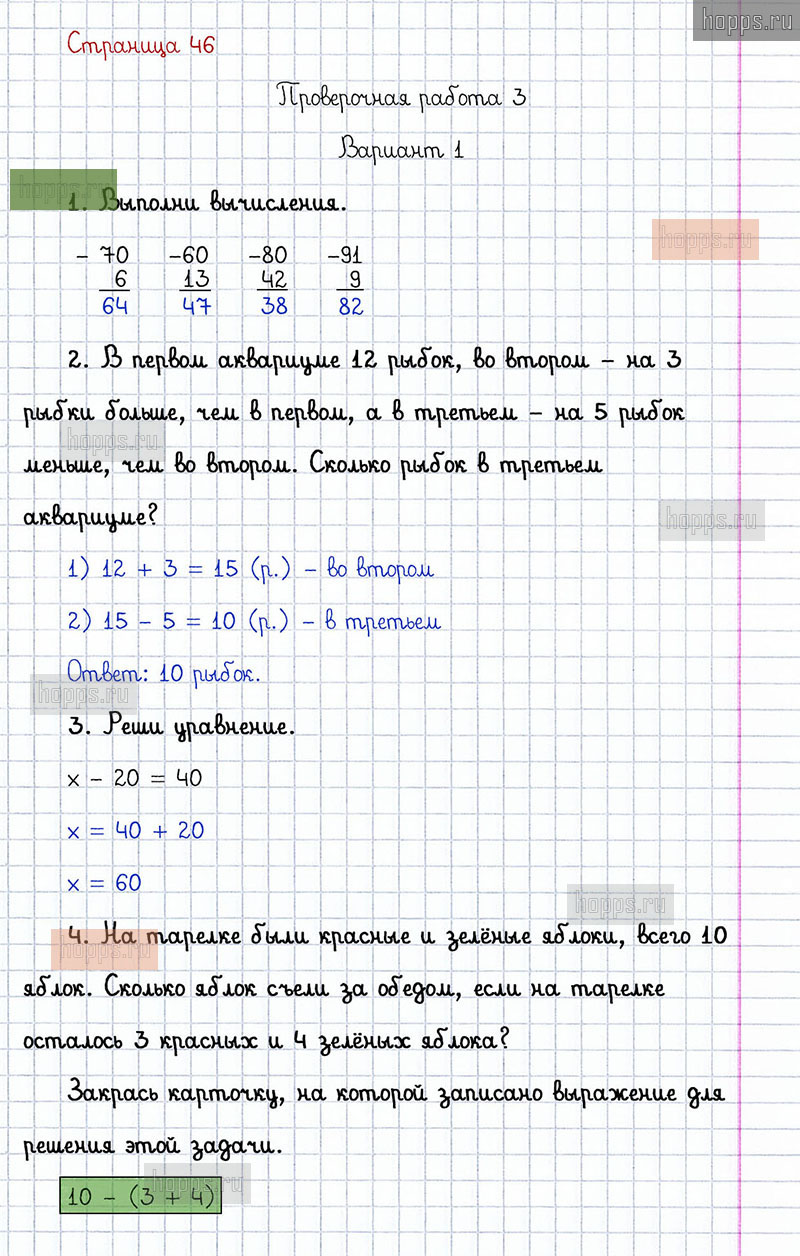 hopps.ru
Страница 46
Проверочная работа 3
Вариант 1
hopps.ru
1. Выполни вычисления.
hopps.ru
– 70 –60 –80 –91
6 13 42 9
64 47 38 82
2. В первом аквариуме 12 рыбок, во втором – на 3
рыбки больше, чем в первом, а в третьем – на 5 рыбок
hopps.ru
меньше, чем во втором. Сколько рыбок в третьем
аквариуме?
hopps.ru
1) 12 + 3 = 15 (р.) – во втором
2) 15 – 5 = 10 (р.) – в третьем
Ответ: 10 рыбок.
hopps.ru
3. Реши уравнение.
x – 20 = 40
x = 40 + 20
x = 60
hopps.ru
4. На тарелке были красные и зелёные яблоки, всего 10
hopps.ru
яблок. Сколько яблок съели за обедом, если на тарелке
осталось 3 красных и 4 зелёных яблока?
Закрась карточку, на которой записано выражение для
решения этой задачи.
hopps.ru
10 – (3 + 4)